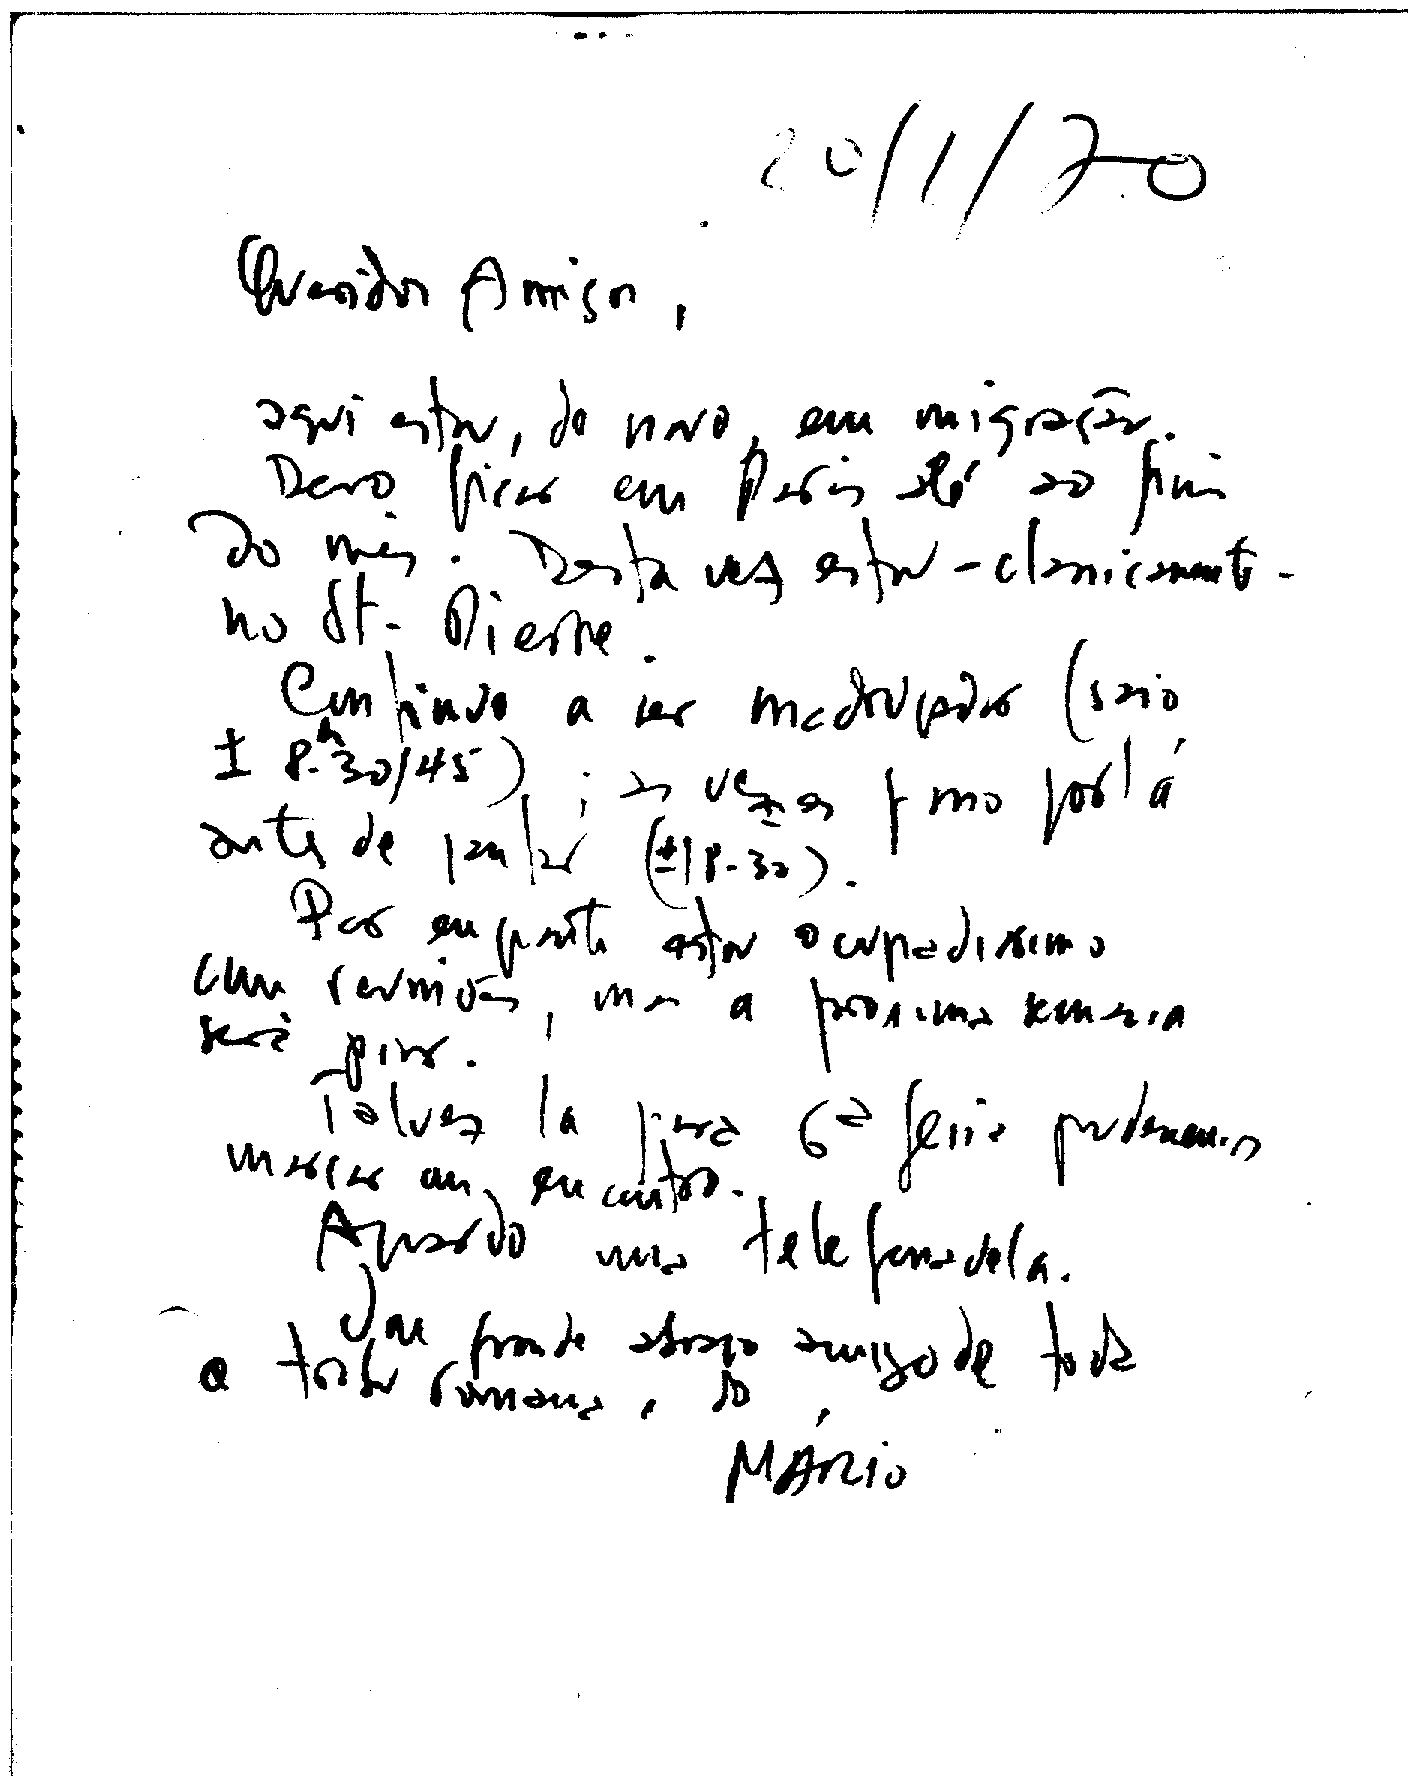 20/1/70
Queridos Amigos,
aqui estou, de novo, em migração.
Devo ficar em Paris até ao fim
do mês. Desta vez estou - classicamente -
no St. Pierre.
Continuo a ser madrugador (saio
± 8h-30/45); às vezes passo por lá
antes de jantar (±18-30).
Por enquanto estou ocupadíssimo
com reuniões, mas a próxima semana
será pior.
Talvez lá para 6ª feira pudessemos
marcar um encontro.
Aguardo uma telefonadela.
Um grande abraço amigo de toda
a tribo romana, do
MÁRIO